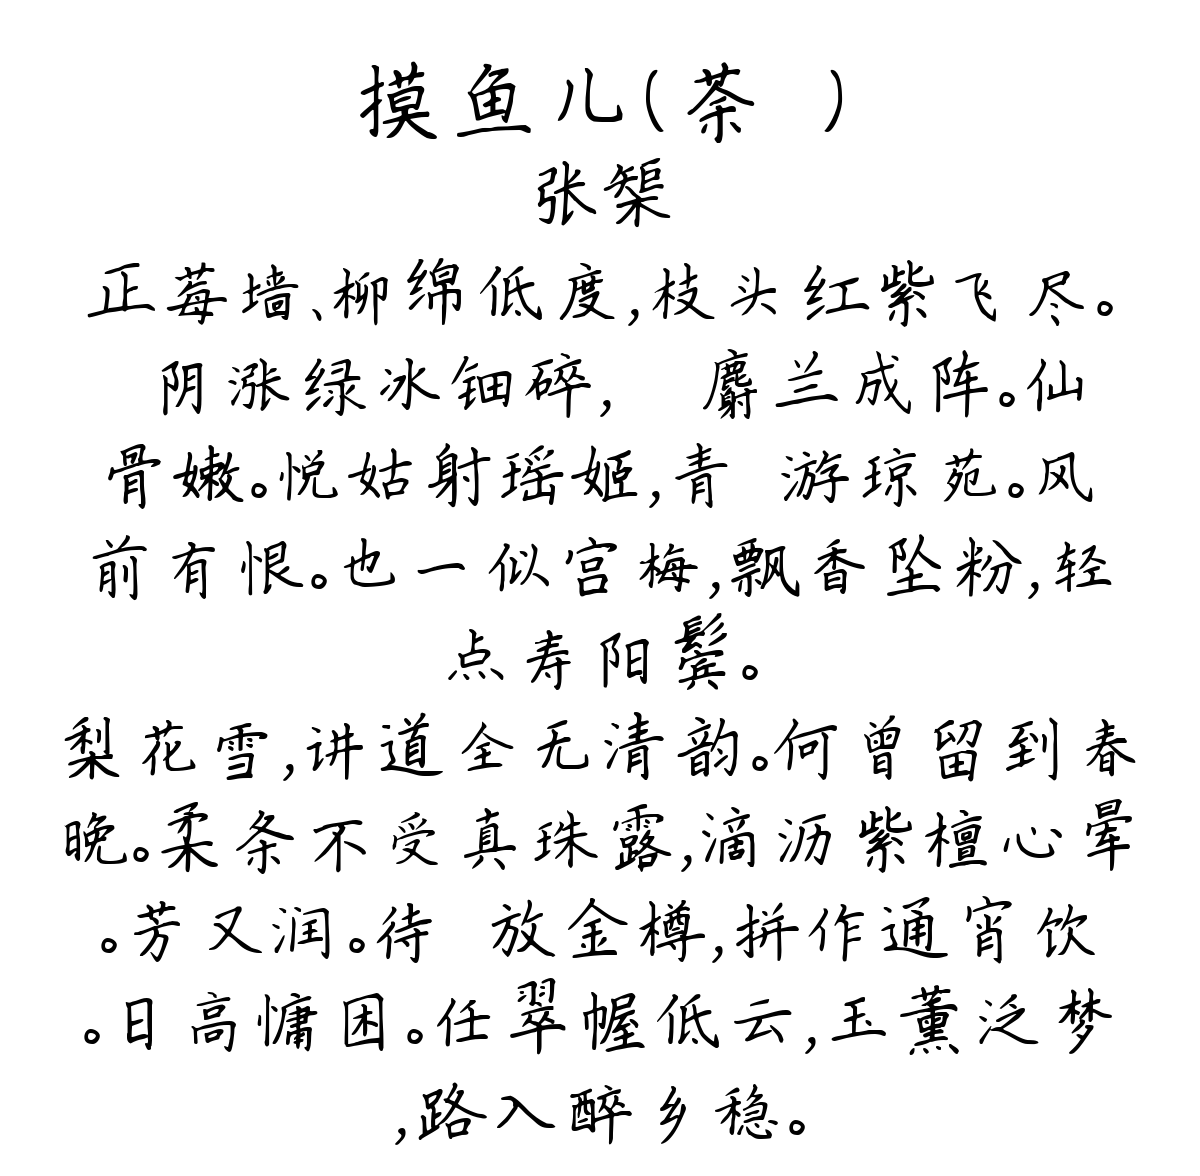 摸鱼儿(荼 )
张榘
正莓墙、柳绵低度,枝头红紫飞尽。
阴涨绿冰钿碎, 麝兰成阵。仙
骨嫩。悦姑射瑶姬,青 游琼苑。风
前有恨。也一似宫梅,飘香坠粉,轻
点寿阳鬓。
梨花雪,讲道全无清韵。何曾留到春
晚。柔条不受真珠露,滴沥紫檀心晕
。芳又润。待 放金樽,拼作通宵饮
。日高慵困。任翠幄低云,玉薰泛梦
,路入醉乡稳。